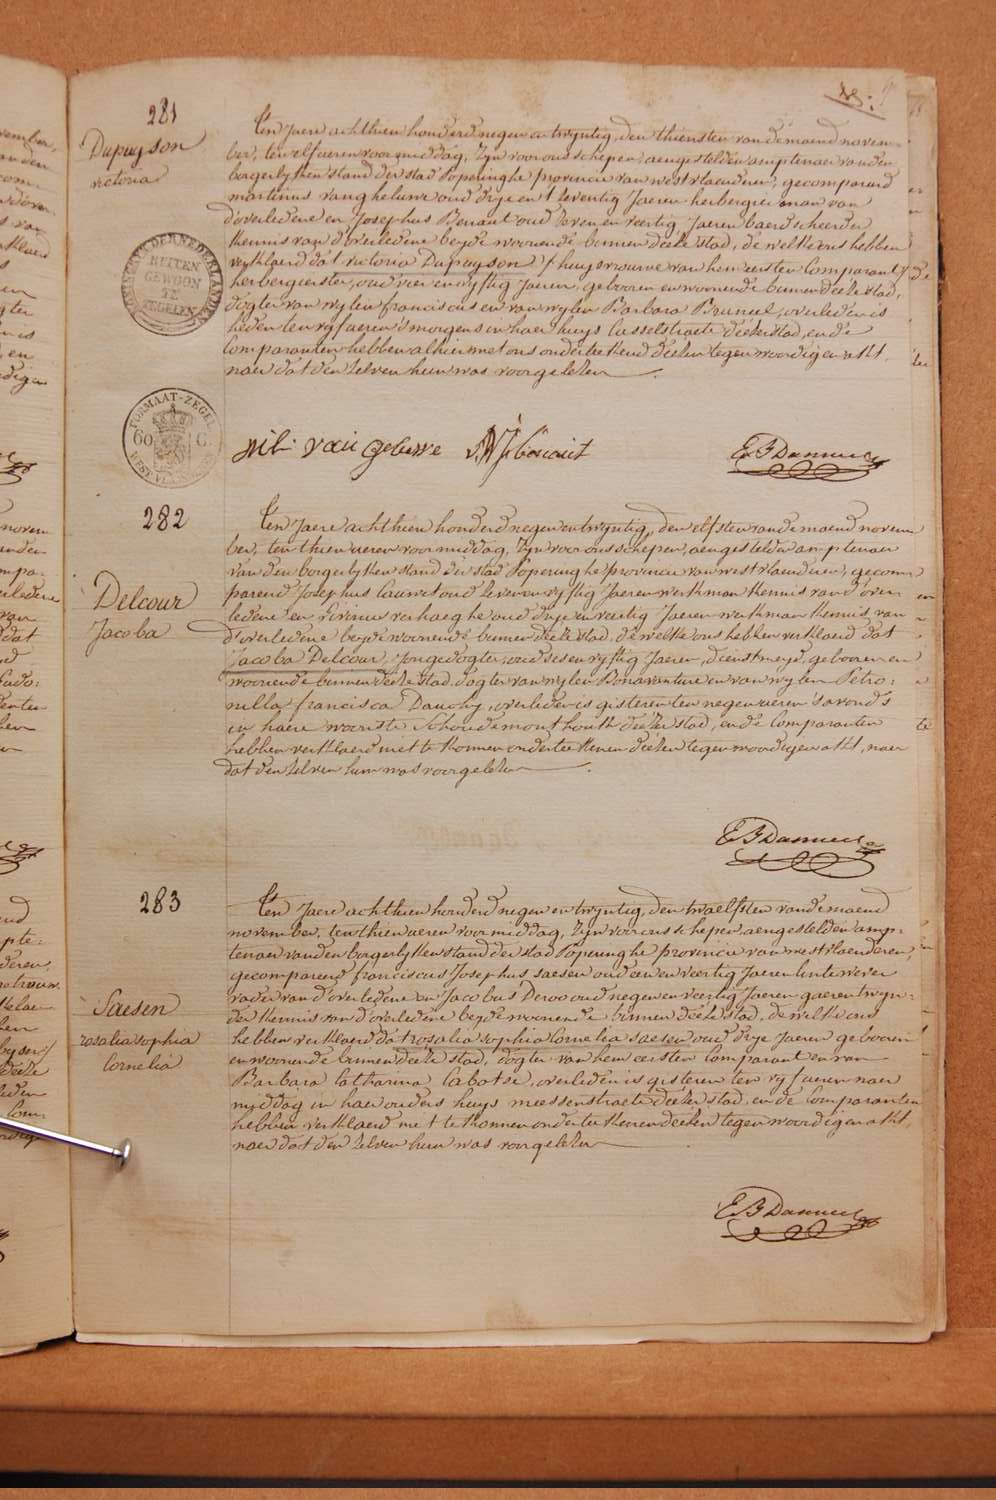 281
Dupuyson
victoria
Ten Jaere achthien honderd negen en twyntig, den thiensten van de maend novem-
ber, ten elf ueren voormiddag, Zyn voor ons schepen, aengestelden amptenaer van den
borgerlyken stand der stad Poperinghe provincie van westvlaenderen, gecompareerd
martinus vangheluwe oud drye en t'seventig Jaeren herbergier man van
d'overledene en Josephus Benaut oud zeven en veertig Jaeren baerdscheerder
kennis van d'overledene beyde woonende binnen deeze stad, de welke ons hebben
verklaerd dat victoria Dupuyson / huysvrouwe van hen eersten Comparant / de
herbergierster, oud vier en vyftig Jaeren, gebooren en woonende binnen deeze stad,
dogter van wylen franciscus en van wylen Barbara Bruneel, overleden is
heden ten vyf ueren 's morgens in haer huys Casselstraete deezer stad, en de
Comparanten hebben alhier met ons onderteekend deezen tegenwoordigen akt,
naer dat den zelven hun was voorgelezen
KONINGRYK DER NEDERLANDEN
BUITEN
GEWOON
TE
ZEGELEN
FORMAAT-ZEGEL
60 C.
WEST VLAANDEREN
mk: van geluwe
282
Delcour
Jacoba
Ten Jaere achthien honderd negen en twyntig, den elfsten van de maend novem
ber, ten thien ueren voormiddag, Zyn voor ons schepen, aengestelden amptenaer
van den borgerlyken stand der stad Poperinghe provincie van westvlaenderen, gecom-
pareerd Josephus Cauwel oud zeven en vyftig Jaeren werkman kennis van d'over
ledene en Livinus verhaeghe oud drye en veertig Jaeren werkman kennis van
d'overledene beyde woonende binnen deeze stad, de welke ons hebben verklaerd dat
Jacoba Delcour, Jonge dogter, oud ses en vyftig Jaeren, dienstmeyd, gebooren en
woonende binnen deeze stad, dogter van wylen Bonaventure en van wylen Petro:
nilla francisca Dauchy, overleden is gisteren ten negen ueren 's avonds
in haere wooniste Schoudemonthouk deezer stad, en de Comparanten
hebben verklaerd niet te konnen onderteekenen deezen tegenwoordigen akt, naer
dat den zelven hun was voorgelezen
283
Saesen
rosalia sophia
Cornelia
Ten Jaere achthien honderd negen en twyntig, den twaelfsten van de maend
november, ten thien ueren voormiddag, Zyn voor ons schepen, aengestelden amp-
tenaer van den borgerlyken stand der stad Poperinghe provincie van westvlaenderen,
gecompareerd franciscus Josephus saesen oud een en veertig Jaeren lintwever
vader van d'overledene en Jacobus Deroo oud negen en veertig Jaeren gaerentwyn-
der kennis van d'overledene beyde woonende binnen deeze stad, de welke ons
hebben verklaerd dat rosalia sophia Cornelia saesen oud drye Jaeren gebooren
en woonende binnen deeze stad, dogter van hem eersten Comparant en van
Barbara Catharina Cabotse, overleden is gisteren ten vyf ueren naer
middag in haer ouders huys meessenstraete deezer stad, en de Comparanten
hebben verklaerd niet te konnen onderteekenen deezen tegenwoordigen akt,
naer dat den zelven hun was voorgelezen